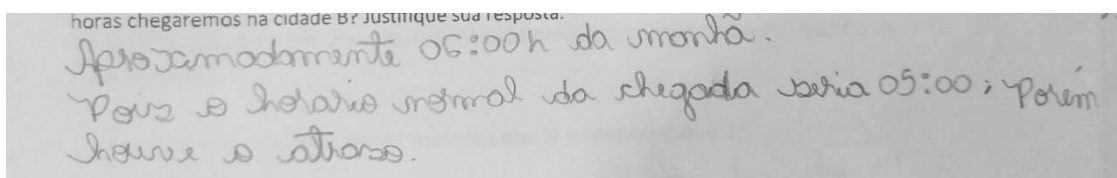 horas chegaremos na cidade B? Justifique sua resposta.
Aproxamadamente 06:00h da manhã.
Pois o horario normal da chegada seria 05:00; Porém
houve o atraso.